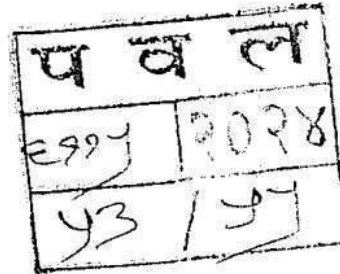 प व ल
६११५ २०२४
५३ / ५५